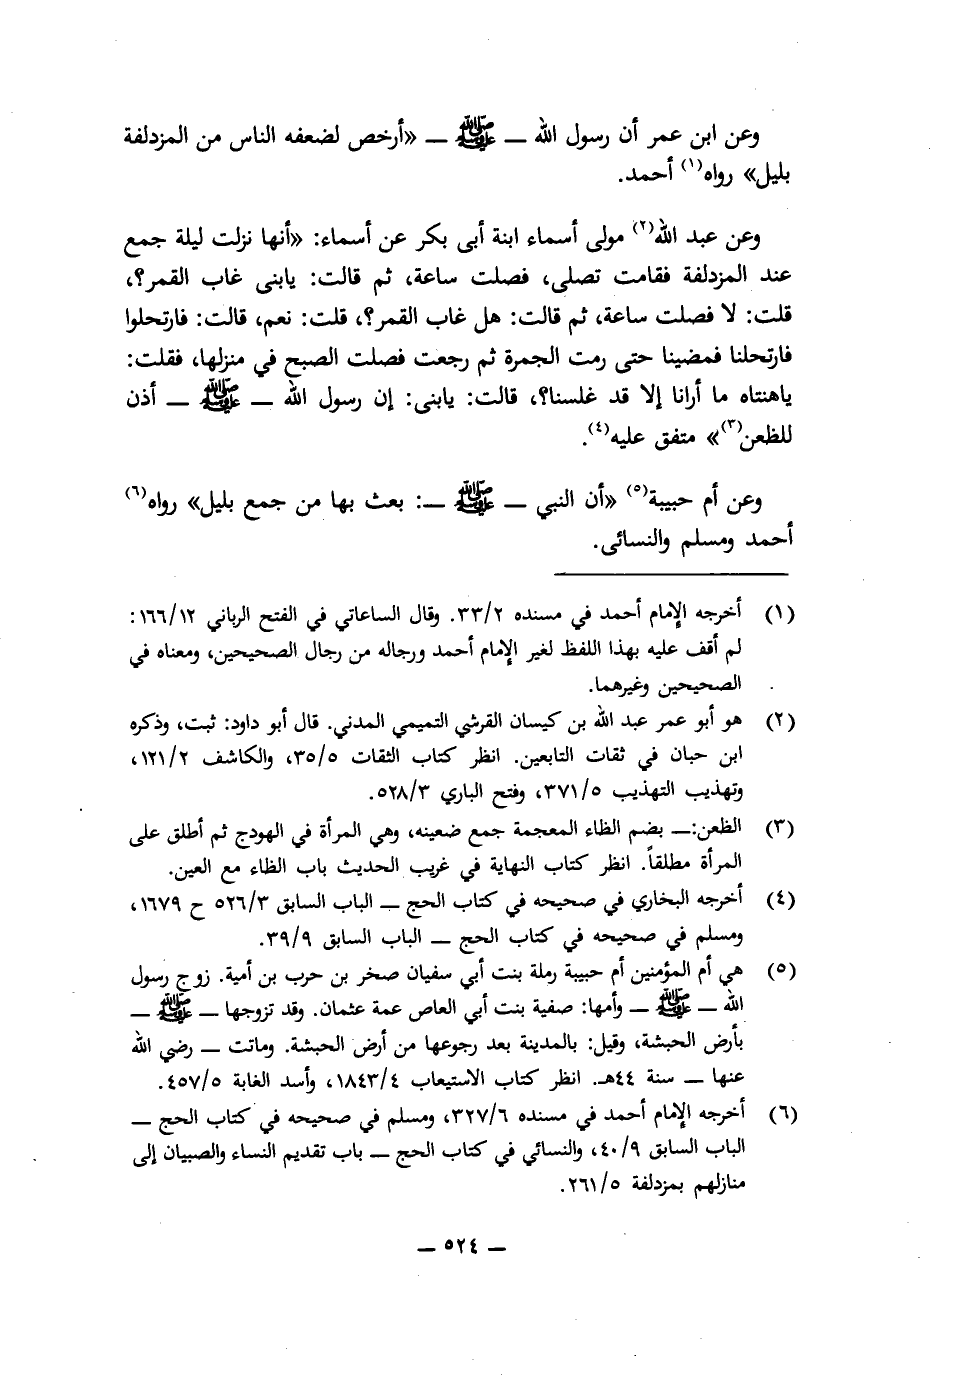 وعن ابن عمر أن رسول الله — ﷺ — «أرخص لضعفه الناس من المزدلفة
بليل» رواه(١) أحمد.
وعن عبد الله(٢) مولى أسماء ابنة أبى بكر عن أسماء: «أنها نزلت ليلة جمع
عند المزدلفة فقامت تصلى، فصلت ساعة، ثم قالت: يابنى غاب القمر؟،
قلت: لا فصلت ساعة، ثم قالت: هل غاب القمر؟، قلت: نعم، قالت: فارتحلوا
فارتحلنا فمضينا حتى رمت الجمرة ثم رجعت فصلت الصبح في منزلها، فقلت:
ياهنتاه ما أرانا إلا قد غلسنا؟، قالت: يابنى: إن رسول الله — ﷺ — أذن
للظعن(٣)» متفق عليه(٤).
وعن أم حبيبة(٥) «أن النبي — ﷺ —: بعث بها من جمع بليل» رواه(٦)
أحمد ومسلم والنسائى.
(١) أخرجه الإمام أحمد في مسنده ٣٣/٢. وقال الساعاتي في الفتح الرباني ١٦٦/١٢:
لم أقف عليه بهذا اللفظ لغير الإمام أحمد ورجاله من رجال الصحيحين، ومعناه في
الصحيحين وغيرهما.
(٢) هو أبو عمر عبد الله بن كيسان القرشي التميمي المدني. قال أبو داود: ثبت، وذكره
ابن حبان في ثقات التابعين. انظر كتاب الثقات ٣٥/٥، والكاشف ١٢١/٢،
وتهذيب التهذيب ٣٧١/٥، وفتح الباري ٥٢٨/٣.
(٣) الظعن:— بضم الظاء المعجمة جمع ضعينه، وهي المرأة في الهودج ثم أطلق على
المرأة مطلقاً. انظر كتاب النهاية في غريب الحديث باب الظاء مع العين.
(٤) أخرجه البخاري في صحيحه في كتاب الحج — الباب السابق ٥٢٦/٣ ح ١٦٧٩،
ومسلم في صحيحه في كتاب الحج — الباب السابق ٣٩/٩.
(٥) هي أم المؤمنين أم حبيبة رملة بنت أبي سفيان صخر بن حرب بن أمية. زوج رسول
الله — ﷺ — وأمها: صفية بنت أبي العاص عمة عثمان. وقد تزوجها — ﷺ —
بأرض الحبشة، وقيل: بالمدينة بعد رجوعها من أرض الحبشة. وماتت — رضي الله
عنها — سنة ٤٤هـ. انظر كتاب الاستيعاب ١٨٤٣/٤، وأسد الغابة ٤٥٧/٥.
(٦) أخرجه الإمام أحمد في مسنده ٣٢٧/٦، ومسلم في صحيحه في كتاب الحج —
الباب السابق ٤٠/٩، والنسائي في كتاب الحج — باب تقديم النساء والصبيان إلى
منازلهم بمزدلفة ٢٦١/٥.
— ٥٢٤ —